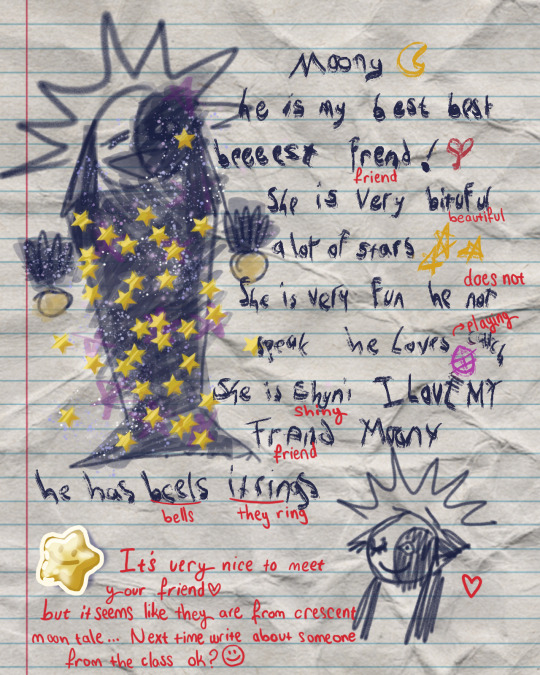 Moony
he is my best best
beeeest frend!
friend
She is very bituful
beautiful
a lot of stars
does not
She is very fun he not
playing
speak he Loves
She is Shyni I LOVE MY
shiny
Frend Moony
friend
he has beels it rings
bells they ring
It's very nice to meet
your friend
but it seems like they are from crescent
moon tale... Next time write about someone
from the class ok?